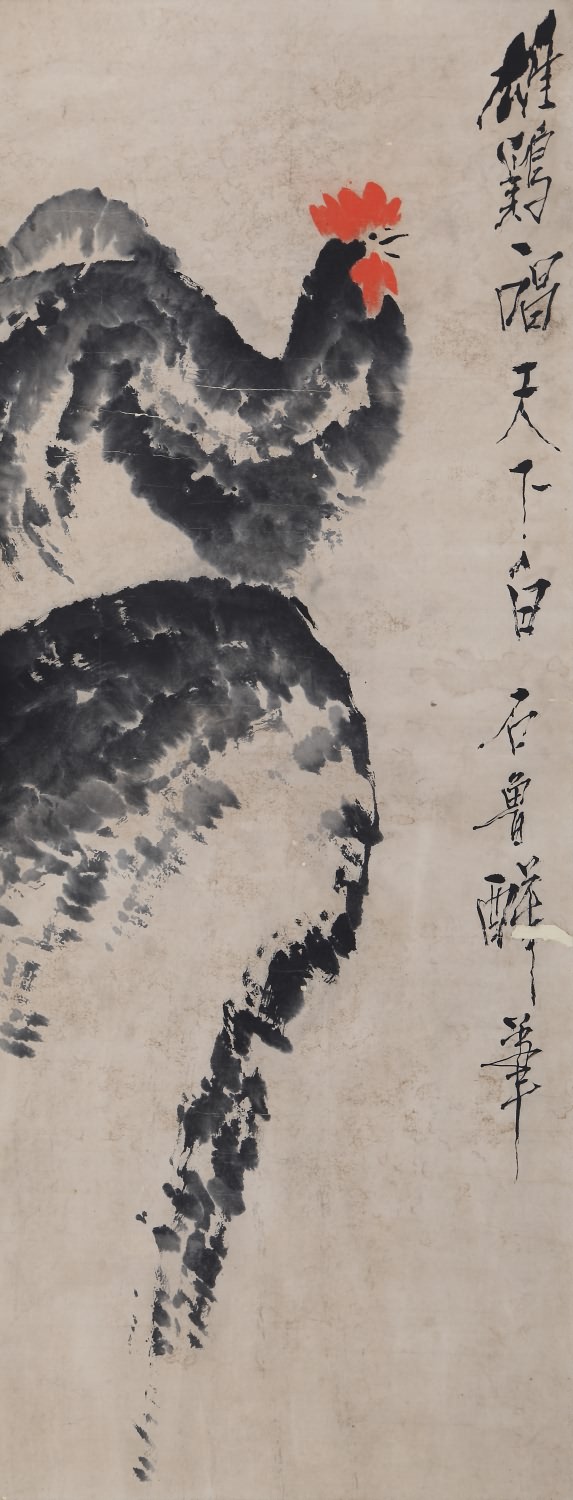 雄鷄一唱天下白 石魯醉筆